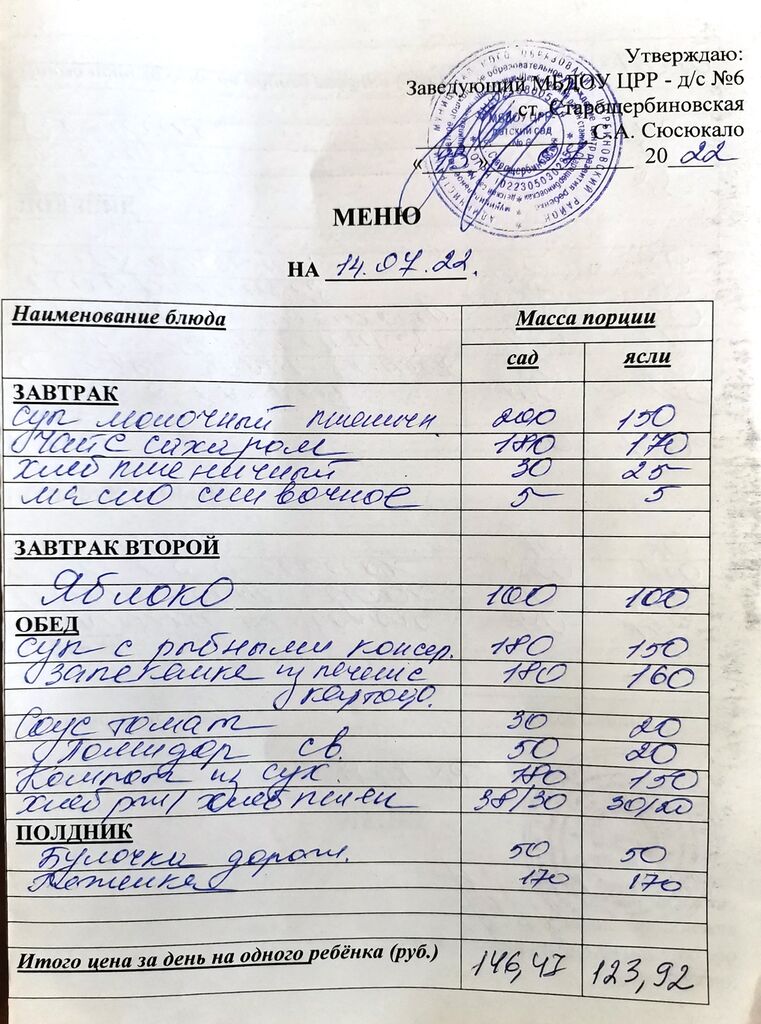 Утверждаю:
Заведующий МБДОУ ЦРР - д/с №6
ст. Старощербиновская
С.А. Сюсюкало
«13» 07 2022
МБДОУ ЦРР
детский сад
№ 6
МЕНЮ
НА 14.07.22.
Наименование блюда Масса порции
сад ясли
ЗАВТРАК
суп молочный пшеничн 200 150
чай с сахаром 180 170
хлеб пшеничный 30 25
масло сливочное 5 5
ЗАВТРАК ВТОРОЙ
Яблоко 100 100
ОБЕД
суп с рыбными консер. 180 150
запеканка из печени с 180 160
картоф.
Соус томат 30 20
Помидор св. 50 20
Компот из сух. 180 150
хлеб рж/ хлеб пшен 38/30 30/20
ПОЛДНИК
Булочка дорож. 50 50
Ряженка 170 170
Итого цена за день на одного ребёнка (руб.) 146,47 123,92